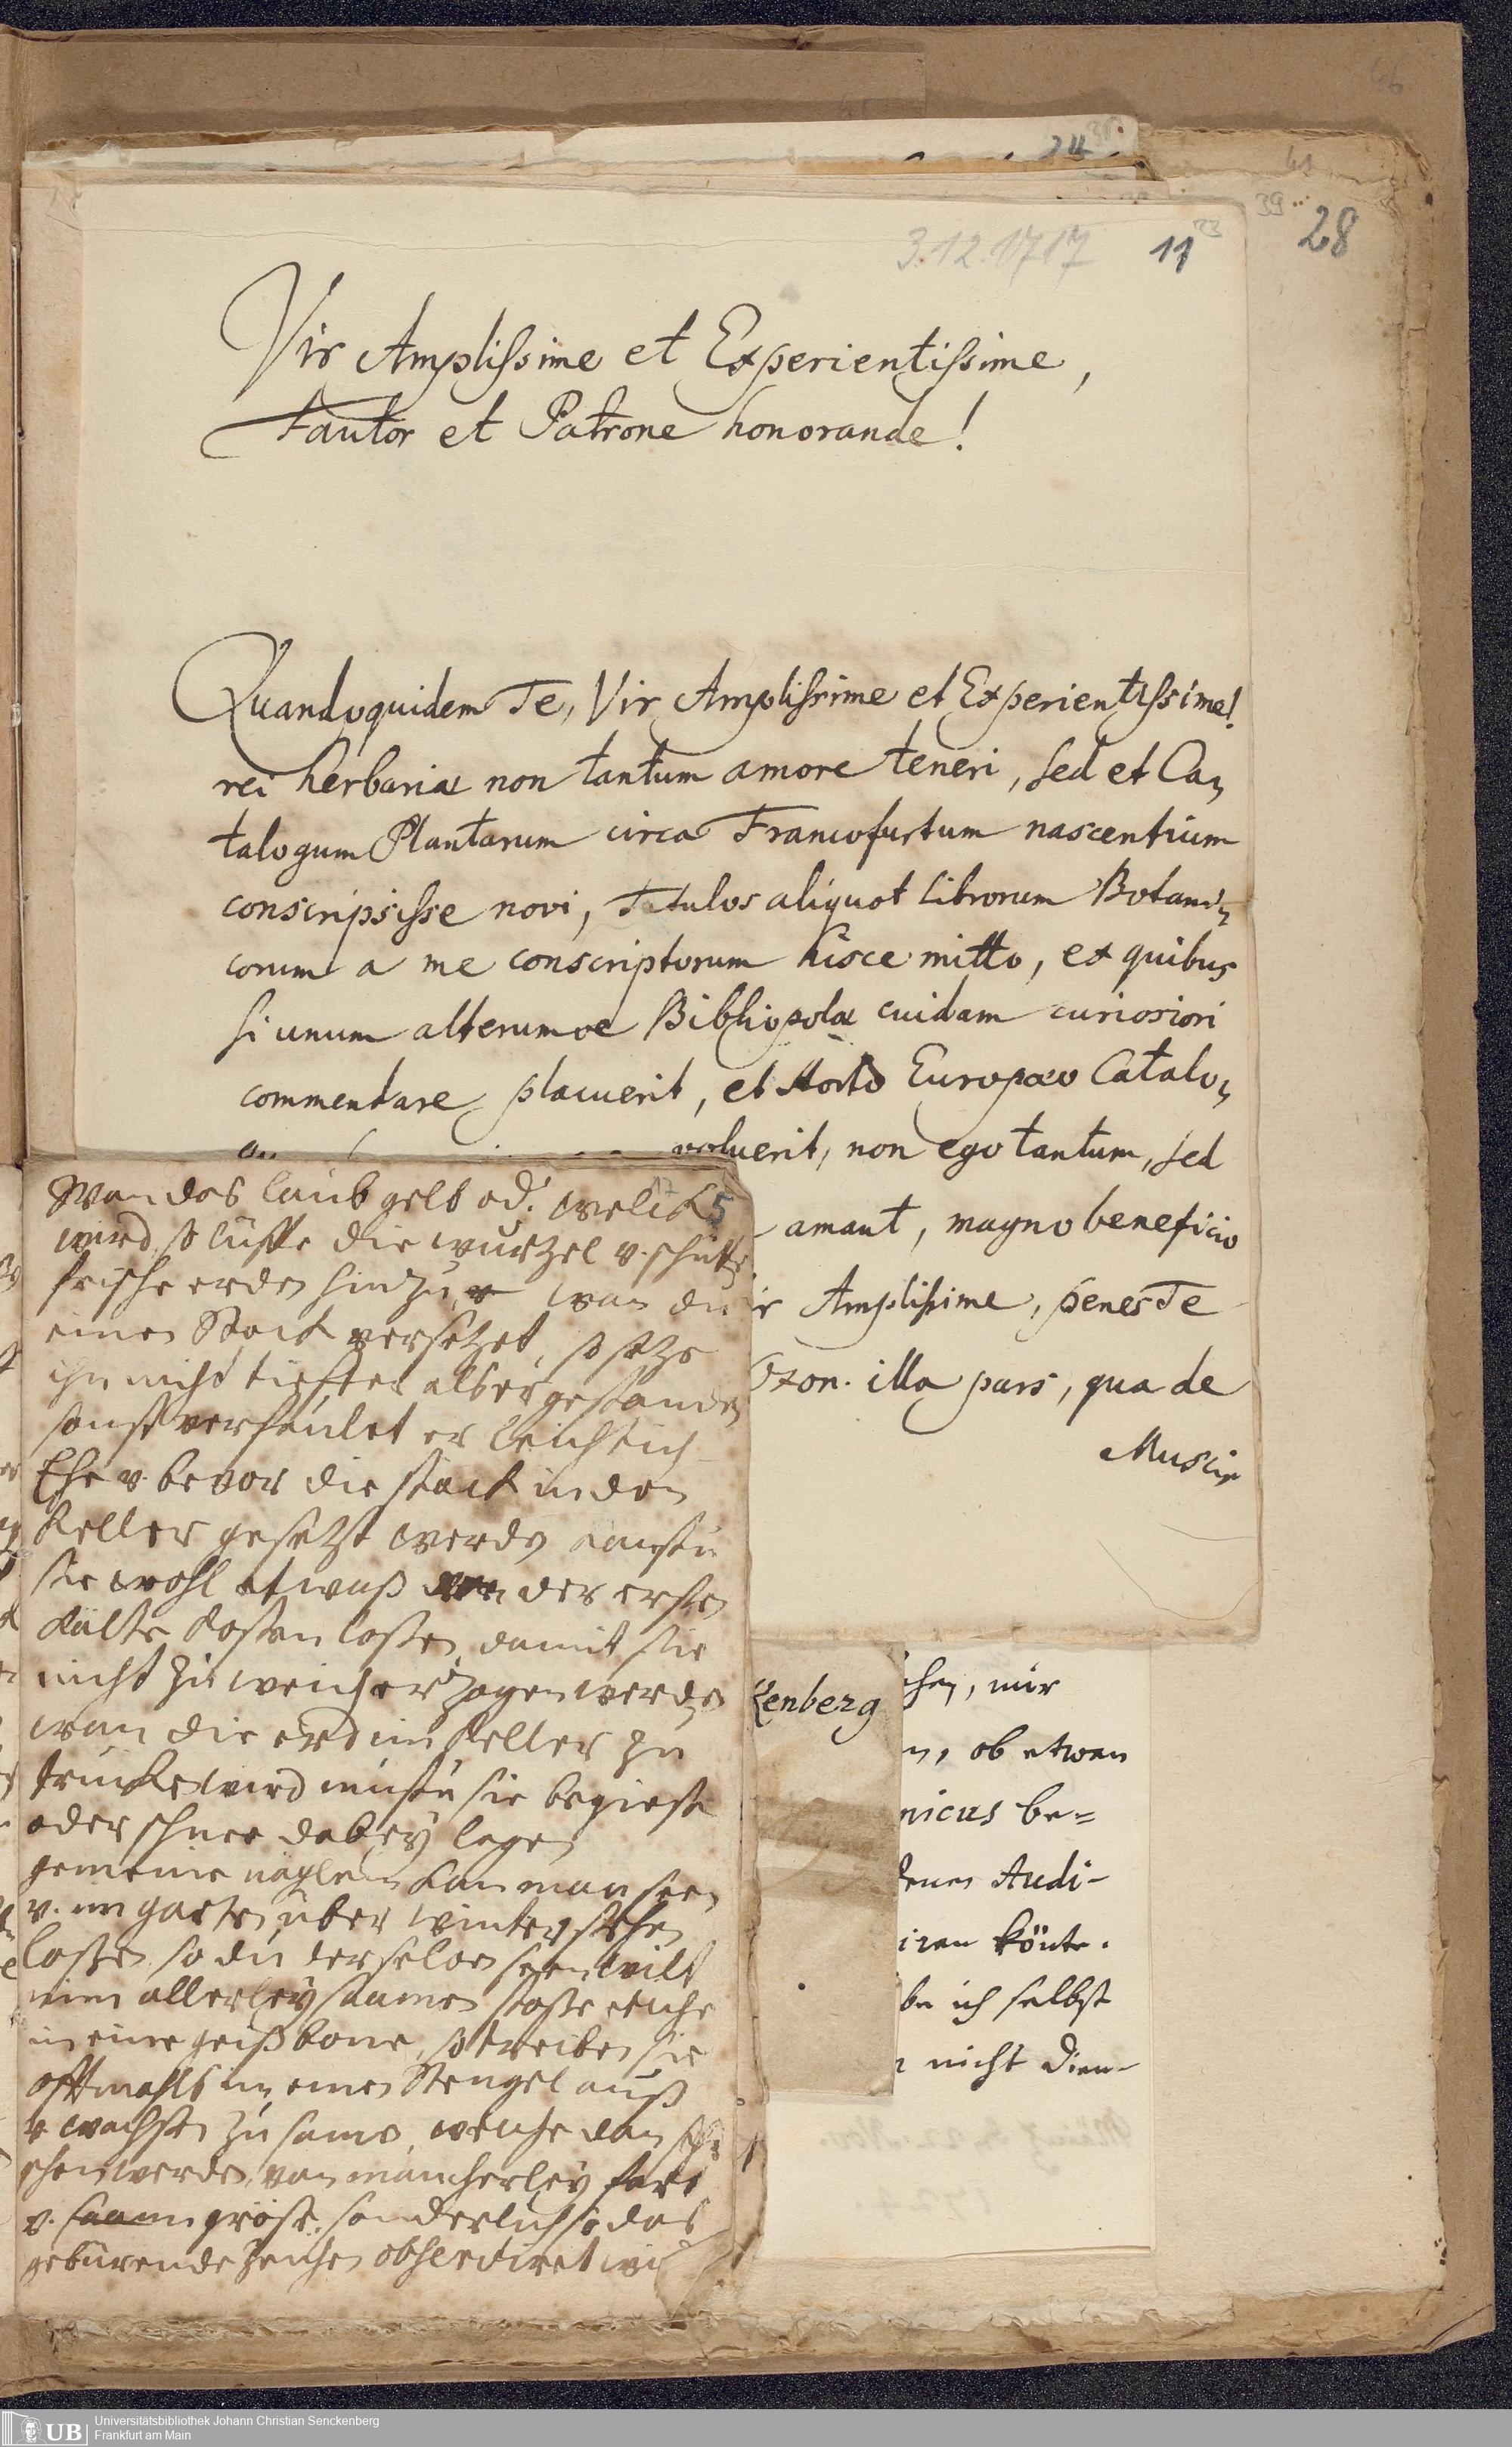 46
24
41
39
28
3.12.1717
11
23
Vir Amplissime et Experientissime,
Fautor et Patrone honorande!
Quandoquidem Te, Vir Amplissime et Experientissime!
rei herbariæ non tantum amore teneri, sed et Ca,
talogum Plantarum circa Francofurtum nascentium
conscripsisse novi, Titulos aliquot Librorum Botani,
corum a me conscriptorum hisce mitto, ex quibus
si unum alterumve Bibliopolæ cuidam curiosiori
commendare placuerit, et Horto Europæo Catalo,
voluerit, non ego tantum, sed
amant, magno beneficio
ir Amplissime, penes Te
illa pars, qua de
Musci
Wan das laub gelb od. welck
5
wird, so lüffte die wurzel v. schütte
frische erden hinzu, v wan du
einen Stock versetzet, so setze
ihn nicht tieffer alß er gestanden
sonst verfaulet er leichtlich
Ehe v. bevor die stöck in den
Keller gesetzt werden kanstu
sie wohl etwaß von der ersten
kälte kosten lassen, damit sie
nicht zu weich erzogen werden
wan die erd im Keller zu
trucken wird mustu sie begiesen
oder schnee dabey legen
gemeine näglein kan man seen
v. im garten über winter stehen
lassen so du derselben seen wilt
nim allerley saamen stosse etliche
in eine geißbone, so treiben sie
offtmahls in einen Stengel auß
v wachsen zusamen, welche dan
werden, von mancherley farb
v. gröse, sonderlich so das
gebürende zeichen observiret wi
kenberg
chen, mir
n, ob etwan
nicus be=
denen Audi-
iren könte.
be ich selbst
nicht dien-
UB
Universitätsbibliothek Johann Christian Senckenberg
Frankfurt am Main